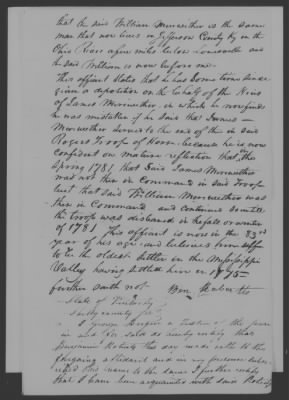 that the said William Meriwether is the same
man that now lives in Jefferson County Ky on the
Ohio River a few miles below Louisville and
he said William is now before me.
This affiant states that he has some time since
given a deposition on the behalf of the Heirs
of James Meriwether, in which he now finds
he was mistaken if he said that James
Meriwether served to the end of the in said
Rogers Troop of Horse, because he is now
confident on mature reflection that in the
spring 1781 that said James Meriwether
was not then in command in said Troop
but that said William Meriwether was
then in command and continued so until
the troop was disbanded in the fall or winter
of 1781. This affiant is now in the 83rd
year of his age and believes himself
to be the oldest settler in the Mississippi
Valley having settled here in 1775
further saith not Ben. Roberts
State of Kentucky
county
I George a Justice of the peace
in and for said county certify that
Benjamin Roberts this day made oath to the
foregoing affidavit and in my presence
his name to the same I further certify
that I have been acquainted with said Roberts